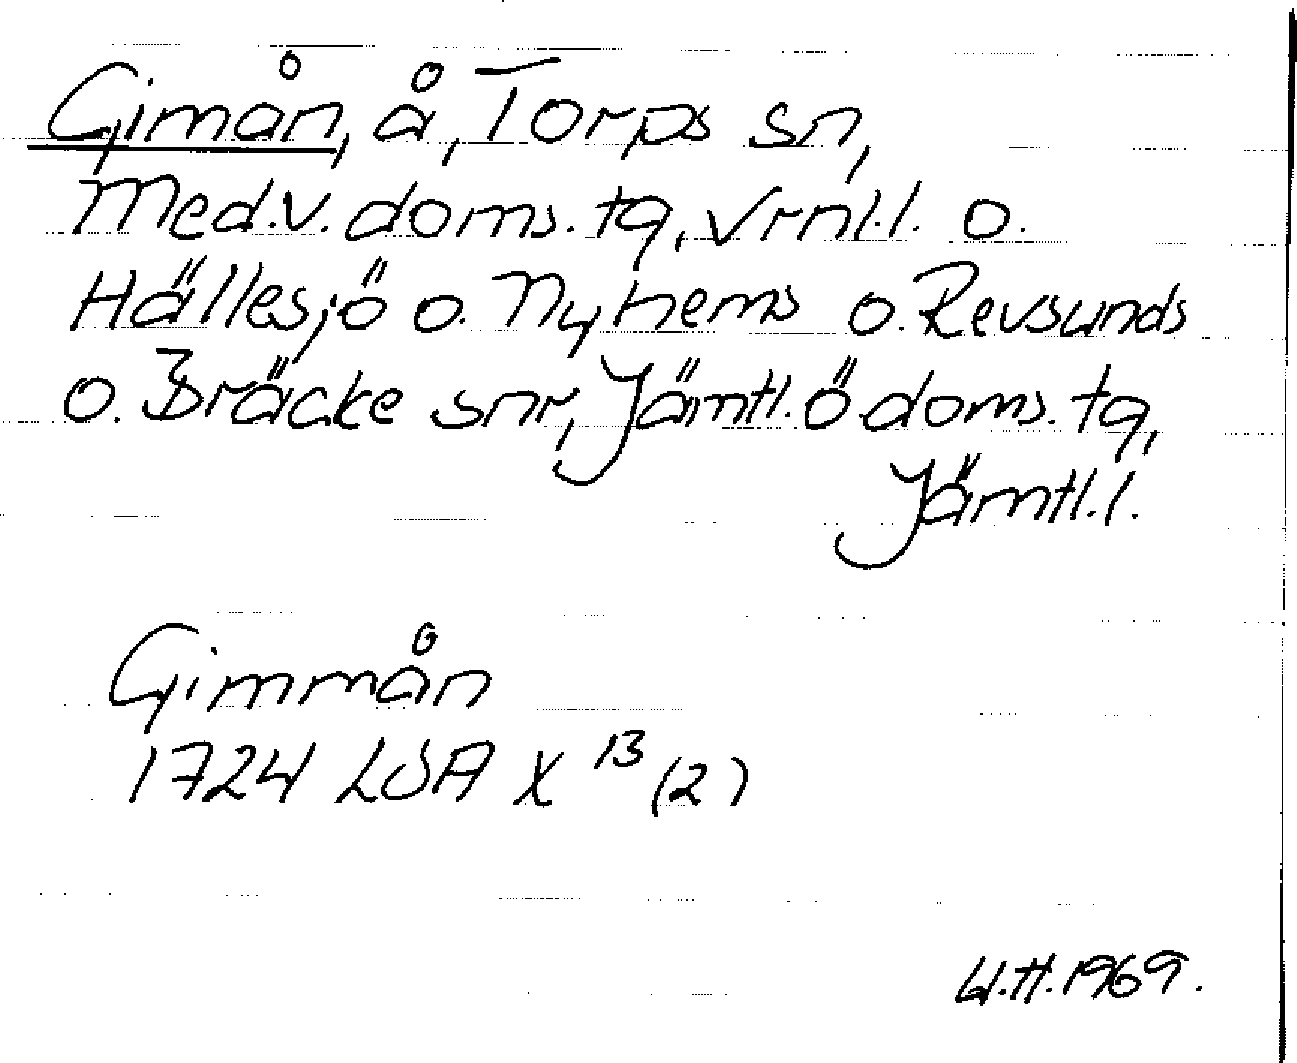 Gimån, å, Torps sn,
Med.v. doms. tq, Vrnl.l. o.
Hällesjö o. Nyhems o. Revsunds
o. Bräcke snr, Jämtl. ö doms. tq,
Jämtl.l.
Gimmån
1724 LSA X 13 (2)
U.H. 1969.